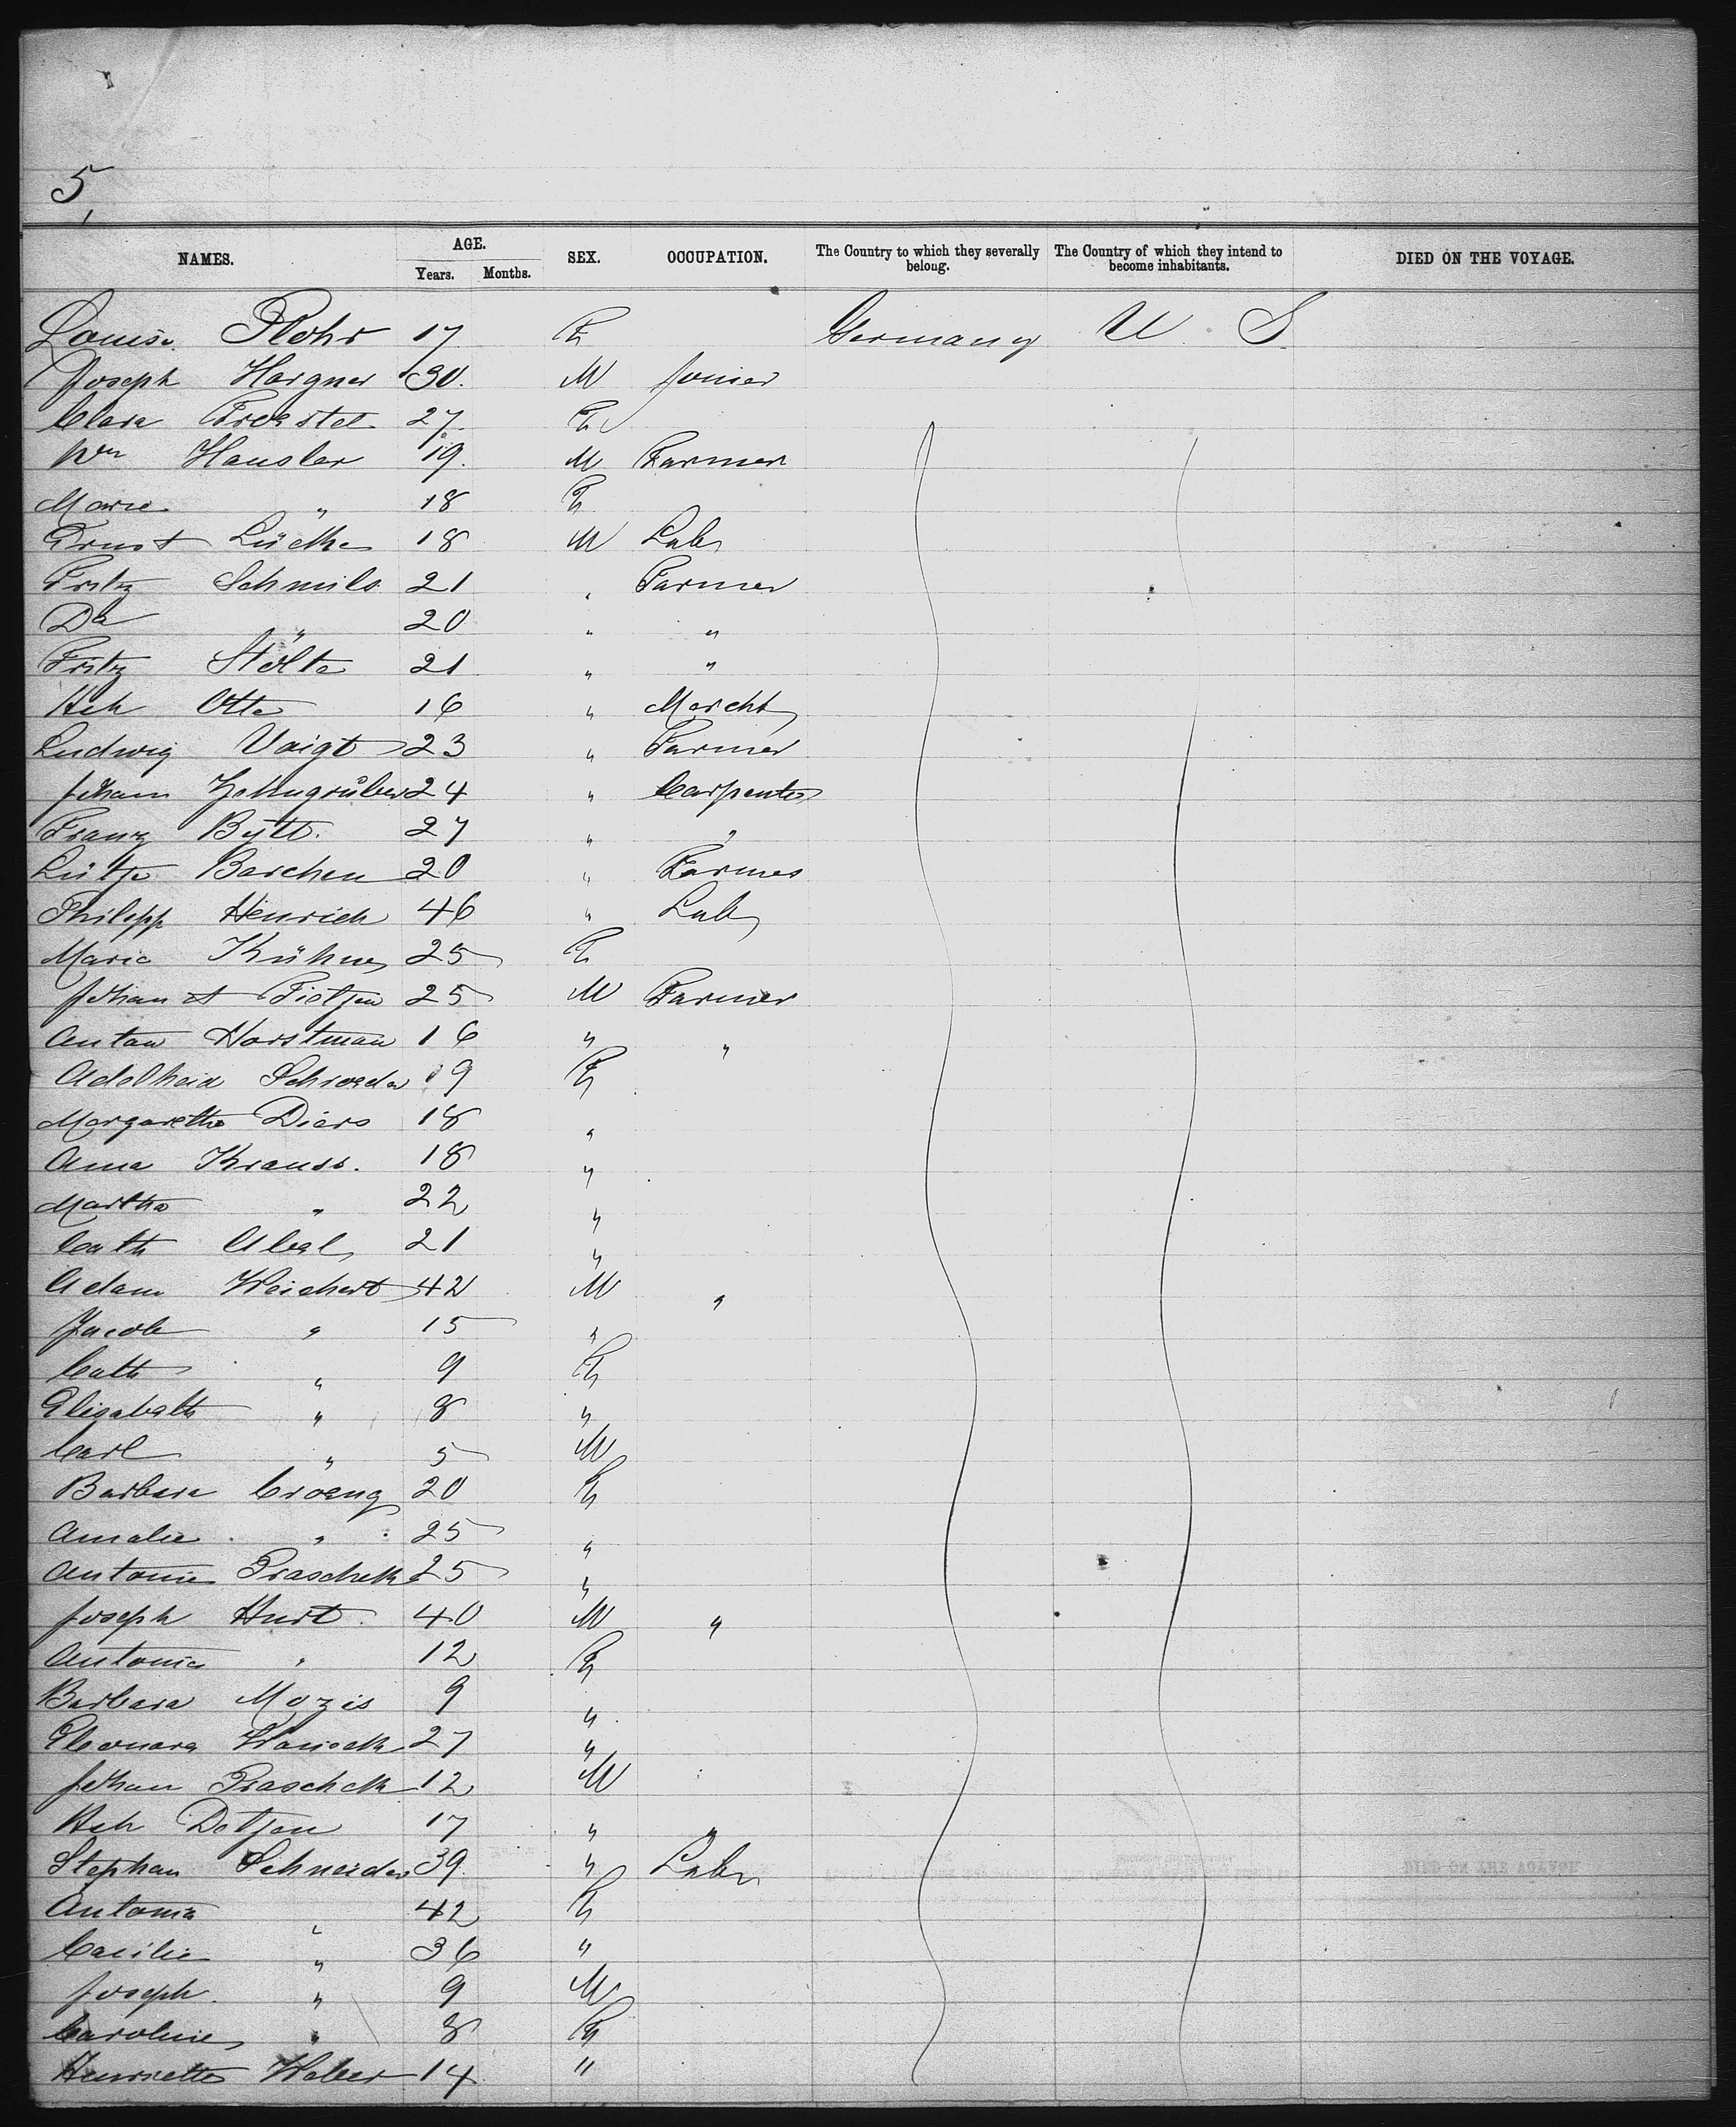 5,
NAMES. AGE. Years. Months. SEX. OCCUPATION. The Country to which they severally belong. The Country of which they intend to become inhabitants. DIED ON THE VOYAGE.
Louise Rohr 17 F Germany U. S
Joseph Hargner 30. M Joiner
Clara 27. F
Wm Hausler 19. M Farmer
Marie " 18 F
Ernst Lücke 18 M Labr
Fritz Schmils 21 " Farmer
Do " 20 " "
Fritz Stölte 21 " "
Hch Otte 16 " Marcht
Ludwig Voigt 23 " Farmer
Johann 24 " Carpenter
Franz Bytt. 27 " "
Lütje Barchen 20 " Farmer
Philipp Henrich 46 " Labr
Marie Kühne 25 F
Johan Tietjen 25 M Farmer
Anton Horstman 16 " "
Adelheid Schroeder 19 F
Margarethe Diers 18 "
Anna Krauss. 18 "
Martha " 22 "
Cath Abel 21 "
Adam Weichert 42 M "
Jacob " 15 "
Cath " 9 F
Elisabeth " 8 "
Carl " 5 M
Barbara Croeng 20 F
Amalie " 25 "
Antonie Praschek 25 "
Joseph Hurt. 40 M "
Antonia " 12 F
Barbara Mozis 9 "
Eleonara 27 "
Johan Praschek 12 M
Hch Detjen 17 " "
Stephan Schneider 39 " Labr
Antonia " 42 F
Cacilie " 36 "
Joseph. " 9 M
Caroline " 8 F
Henriette Weber 14 "